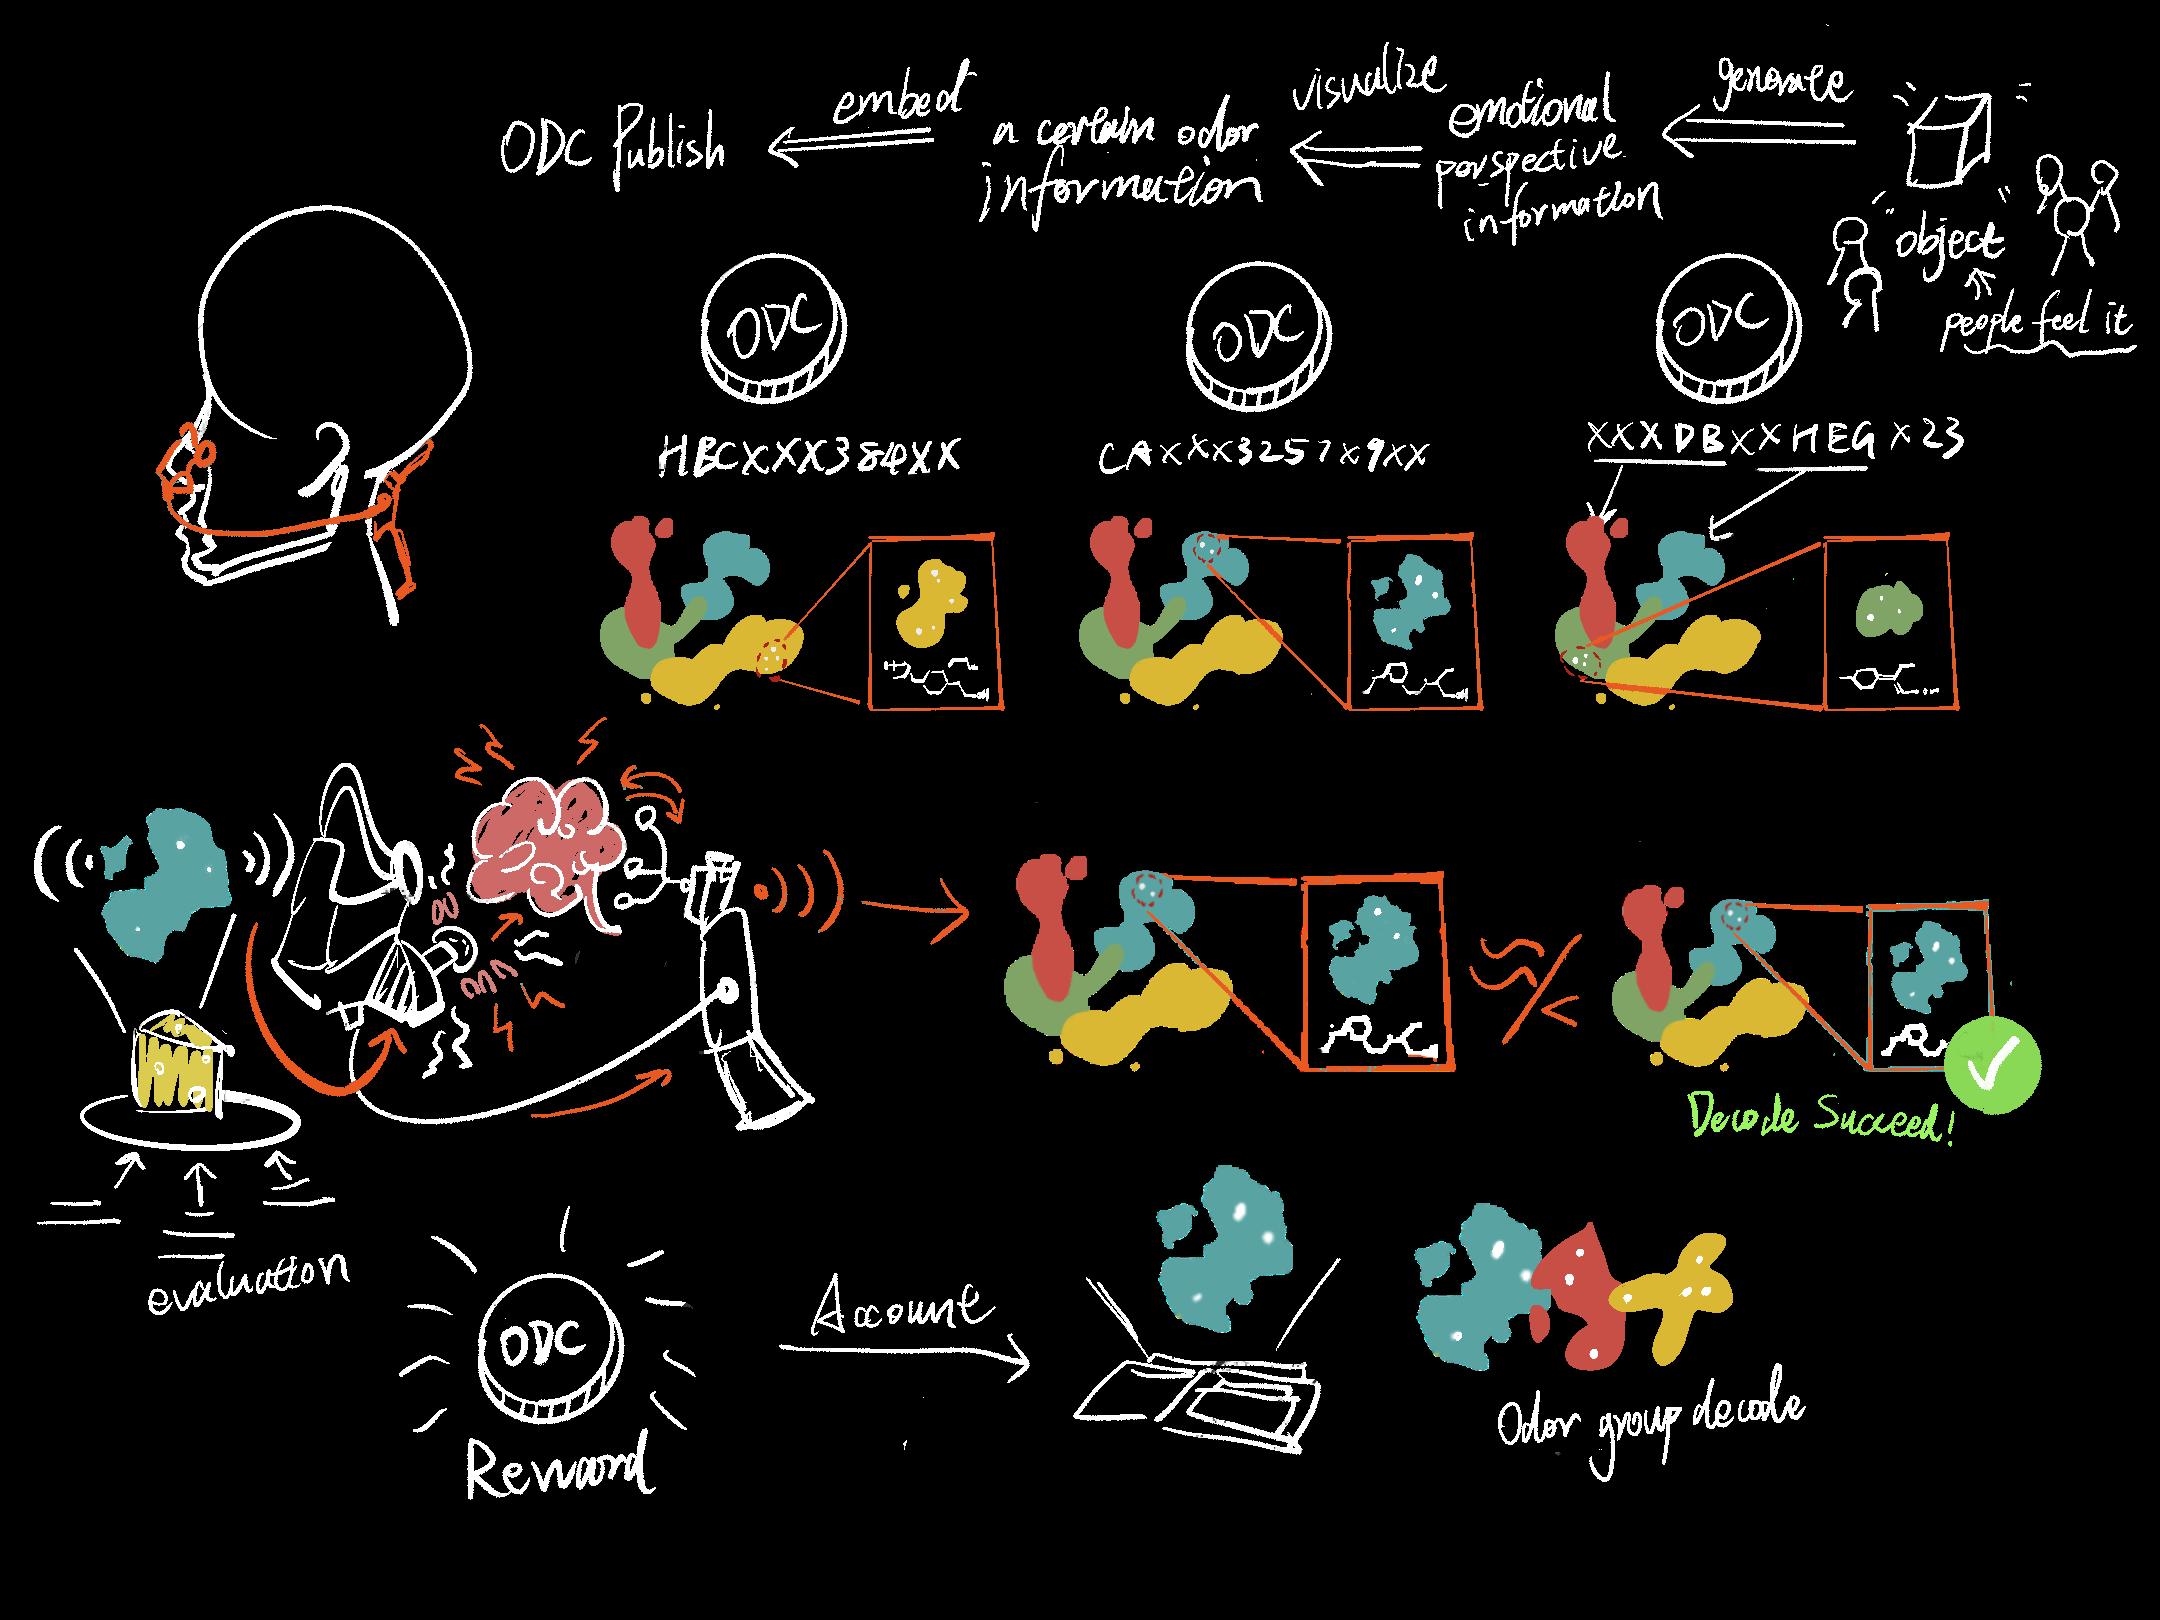 ODC Publish
embed
a certain odor
information
visualize
emotional
perspective
information
generate
"object"
people feel it
ODC
ODC
ODC
HBCXXX384XX
CAXXX3257X9XX
XXXDBXXHEGX23
evaluation
Decode Succeed!
ODC
Reward
Account
Odor group decode